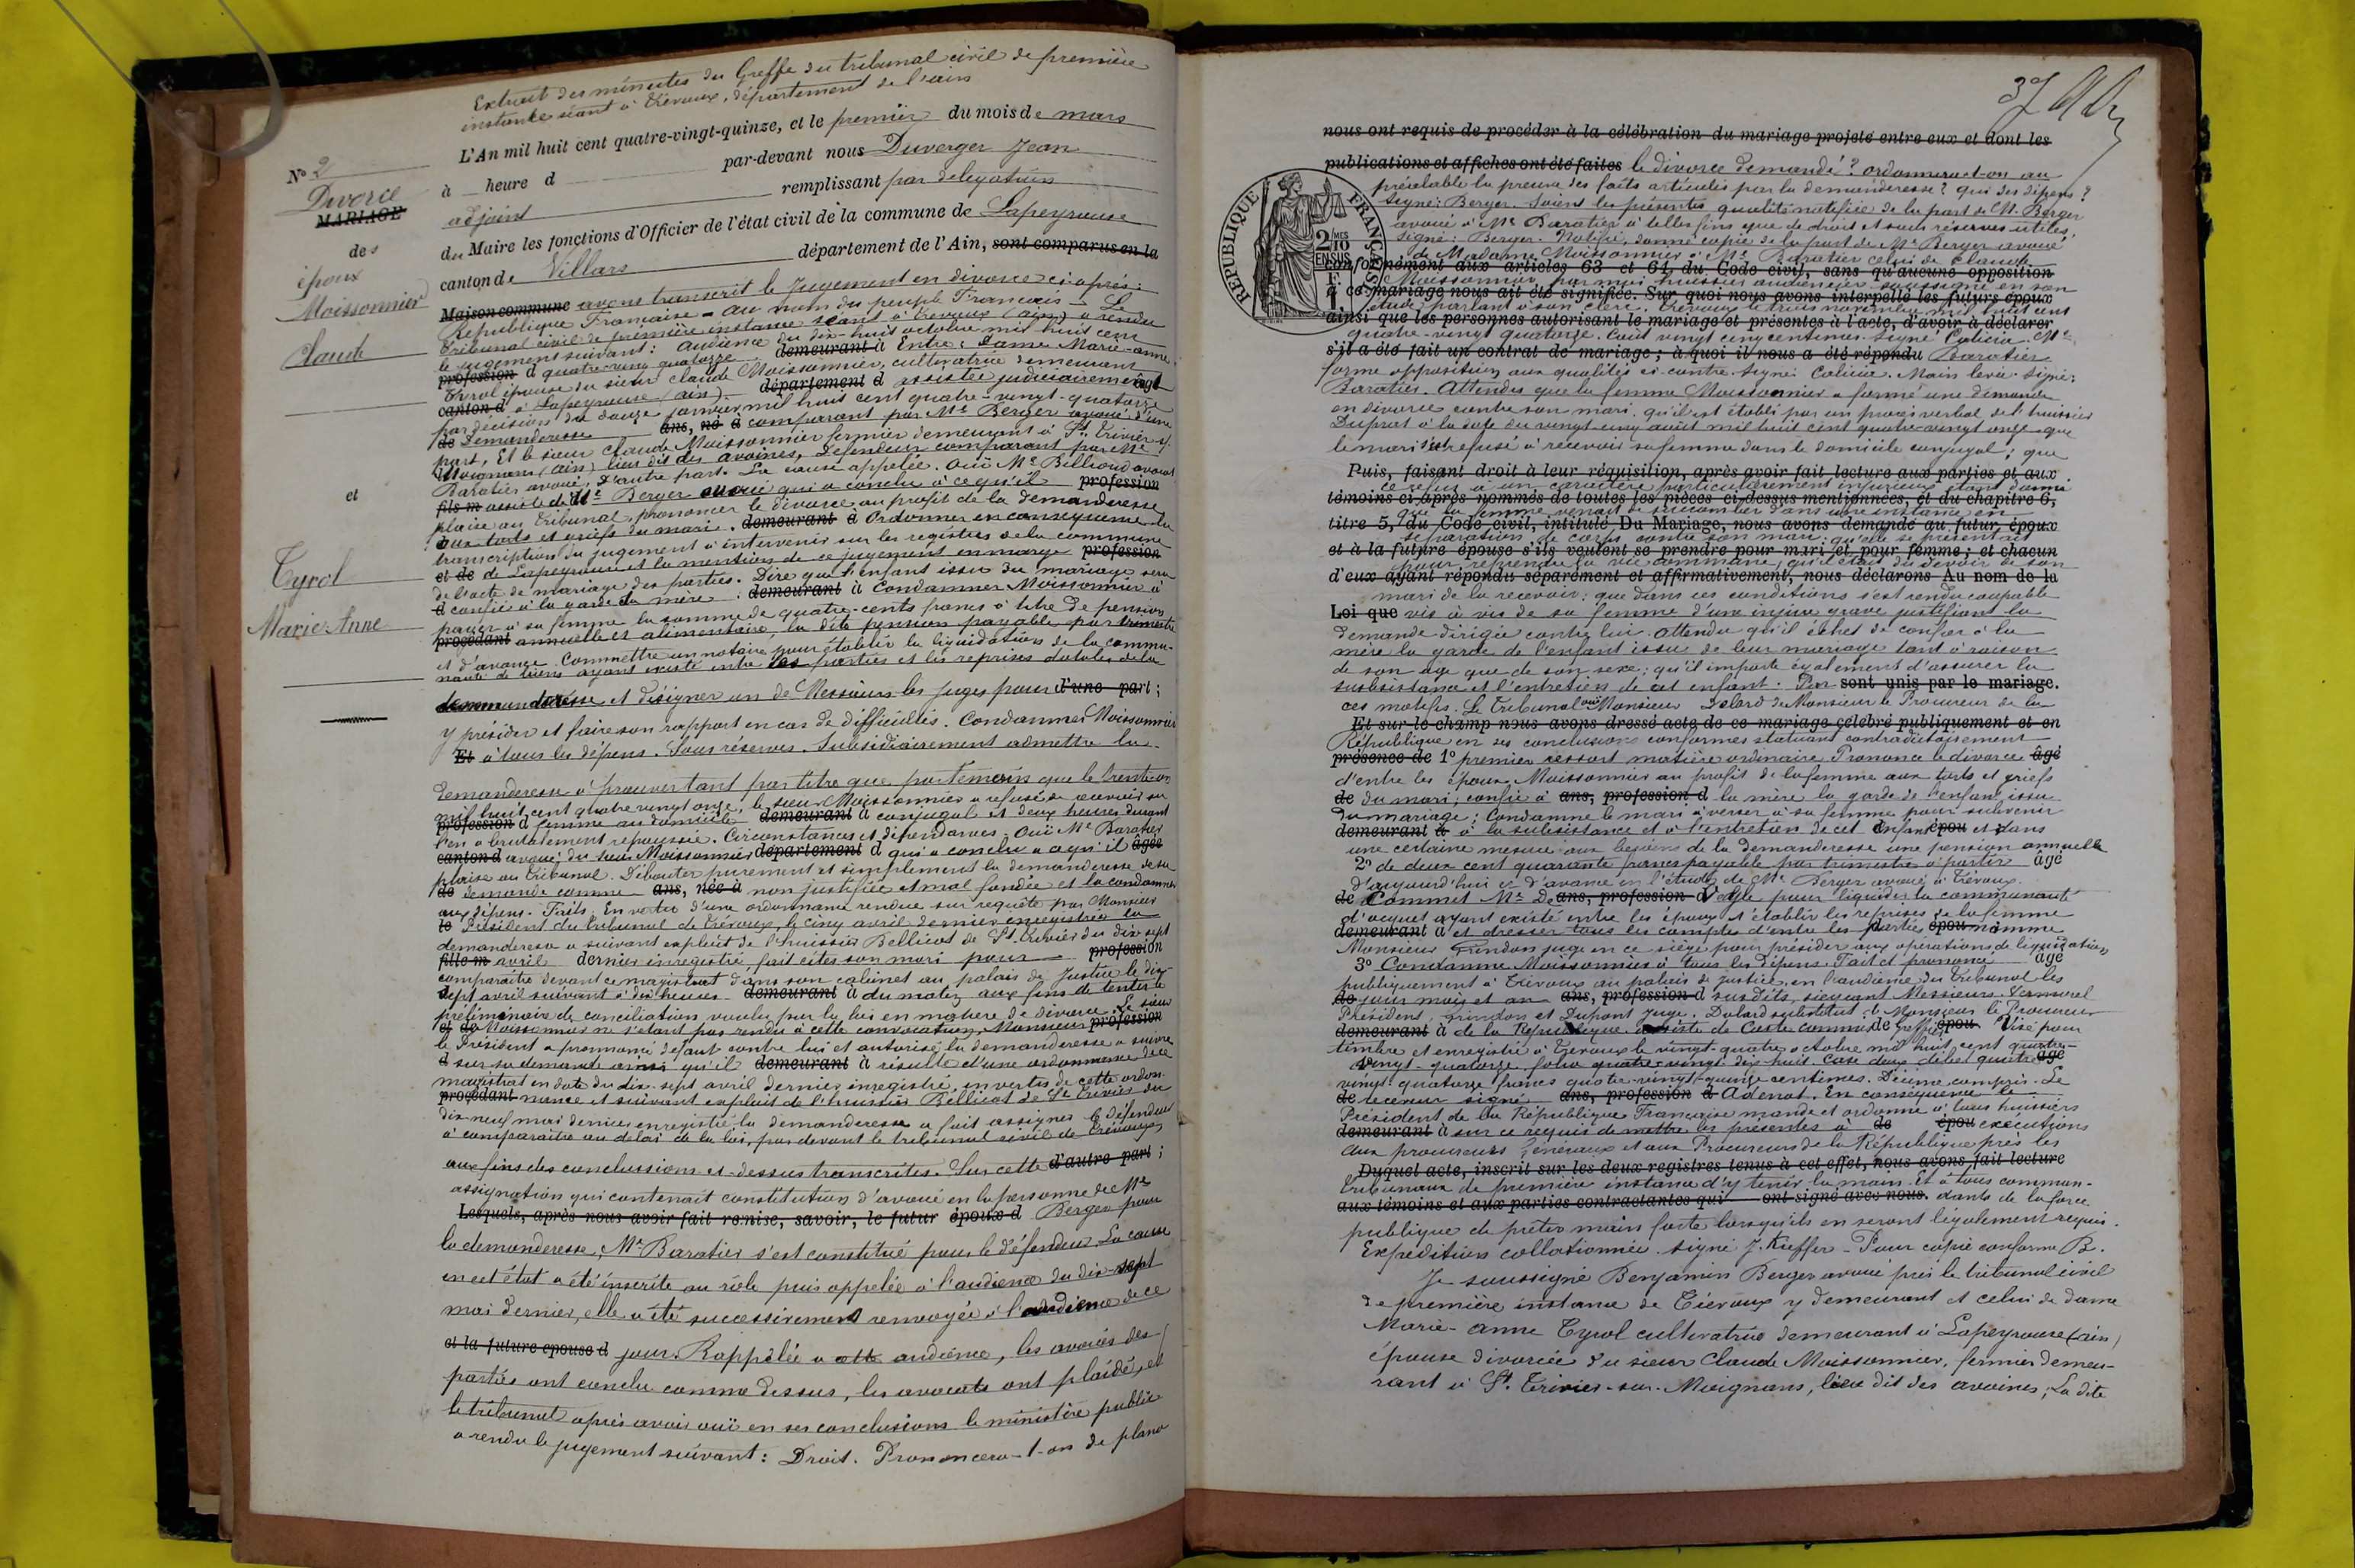 Extrait des minutes du Greffe du tribunal civil de première
instance séant à Trévoux, département de l'ain
L'An mil huit cent quatre-vingt-quinze, et le premier du mois de mars
à heure d par-devant nous Duverger Jean
adjoint remplissant par delegation
du Maire les fonctions d'Officier de l'état civil de la commune de Lapeyrouse
canton de Villars département de l'Ain, sont comparus en la
No 2
Divorce
MARIAGE
des
époux
Moissonnier
Claude
et
Tyrol
Marie Anne
Maison commune avons transcrit le Jugement en divorce ci-après :
République Française - au nom du peuple Français - Le
Tribunal civil de première instance séant à Trévoux (ain) a rendu
le jugement suivant : Audience du dix huit octobre mil huit cent
profession d quatre-vingt quatorze demeurant à Entre : Dame Marie-anne
Tyrol épouse du sieur Claude Moissonnier, cultivatrice demeurant
canton d à Lapeyrouse (ain) département d assistée judiciairement âgé
par décision du douze janvier mil huit cent quatre-vingt-quatorze
de Demanderesse ans, né à comparant par Me Berger avoué d'une
part, Et le sieur Claude Moissonnier fermier demeurant à St Trivier s/
Moignans (ain) lieu dit des avoines, défendeur comparant par Me
Baratier avoué, d'autre part. La cause appelée. Ouï Me Billioud avocat
fils m assisté de Me Berger avoué qui a conclu à ce qu'il profession
plaise au Tribunal, prononcer le divorce au profit de la demanderesse
aux torts et griefs du mari. demeurant à Ordonner en conséquence la
transcription du jugement à intervenir sur les registres de la commune
et de de Lapeyrouse et la mention de ce jugement en marge profession
de l'acte de mariage des parties. Dire que l'enfant issu du mariage sera
d confié à la garde de la mère. demeurant à Condamner Moissonnier à
payer à sa femme la somme de quatre-cents francs à titre de pension
procédant annuelle et alimentaire, la dite pension payable par trimestre
et d'avance. Commettre un notaire pour établir la liquidation de la commu-
nauté de biens ayant existé entre les parties et les reprises dotales de la
demanderesse et désigner un de Messieurs les Juges pour d'une part ;
y présider et faire son rapport en cas de difficultés. Condamner Moissonnier
Et à tous les dépens. Sous réserves. Subsidiairement admettre la
demanderesse à prouver tant par titre que par témoins que le trente
mil huit cent quatre vingt onze, le sieur Moissonnier a refusé de recevoir sa
profession d femme au domicile demeurant à conjugal et deux heures durant
l'en a brutalement repoussée. Circonstances et dépendances. Ouï Me Baratier
canton d avoué du sieur Moissonnier département d qui a conclu a ce qu'il âgée
plaise au tribunal. Débouter purement et simplement la demanderesse de sa
de demande comme ans, née à non justifiée et mal fondée et la condamner
aux dépens. Faits. En vertu d'une ordonnance rendue sur requête par Monsieur
le Président du Tribunal de Trévoux, le cinq avril dernier enregistrée la
demanderesse a suivant exploit de l'huissier Bellicat de St Trivier du dix sept
fille m avril dernier enregistré, fait citer son mari pour profession
comparaître devant ce magistrat dans son cabinet au palais de Justice le dix
sept avril suivant à dix heures demeurant à du matin aux fins de tenter le
préliminaire de conciliation voulu par la loi en matière de divorce. Le sieur
et de Moissonnier ne s'étant pas rendu à cette convocation, Monsieur profession
le Président a prononcé défaut contre lui et autorisé la demanderesse a suivre
d sur sa demande ainsi qu'il demeurant à résulte d'une ordonnance de ce
magistrat en date du dix-sept avril dernier enregistré, en vertu de cette ordon-
procédant nance et suivant exploit de l'huissier Bellicat de St Trivier du
dix-neuf mai dernier enregistré la demanderesse a fait assigner le défendeur
à comparaître au délai de la loi, par devant le tribunal civil de Trévoux,
aux fins des conclusions ci-dessus transcrites. Sur cette d'autre part ;
assignation qui contenait constitution d'avoué en la personne de Me
Lesquels, après nous avoir fait remise, savoir, le futur époux d Berger pour
la demanderesse, Me Baratier s'est constitué pour le défendeur. La cause
en cet état a été inscrite au rôle puis appelée à l'audience du dix-sept
mai dernier, elle a été successivement renvoyée à l'audience de ce
et la future epouse d jour. Rappelée a cette audience, les avoués des
parties ont conclu comme dessus, les avocats ont plaidé, et
le tribunal après avoir ouï en ses conclusions le ministère public
a rendu le jugement suivant : Droit. Prononcera-t-on de plano
37
nous ont requis de procéder à la célébration du mariage projeté entre eux et dont les
publications et affiches ont été faites le divorce demandé ? ordonnera-t-on au
préalable la preuve des faits articulés par la demanderesse ? quid des dépens ?
Signé : Berger. Soient les présentes qualités notifiées de la part de Me Berger
avoué à Me Baratier à telles fins que de droit et sous réserves utiles.
Signé : Berger. Notifié, donné copie de la part de Me Berger avoué
de Madame Moissonnier à Me Baratier celui de Claude
conformément aux articles 63 et 64 du Code civil, sans qu'aucune opposition
Moissonnier, par moi huissier audiencier soussigné en son
à ce mariage nous ait été signifiée. Sur quoi nous avons interpellé les futurs époux
étude, parlant à son clerc. Trévoux le trois novembre mil huit cent
ainsi que les personnes autorisant le mariage et présentes à l'acte, d'avoir à déclarer
quatre-vingt quatorze. Coût vingt cinq centimes. Signé Me
s'il a été fait un contrat de mariage ; à quoi il nous a été répondu Baratier
forme opposition aux qualités ci-contre. Signé : Main levée. Signé :
Baratier. Attendu que la femme Moissonnier a formé une demande
en divorce contre son mari, qu'il est établi par un procès verbal de l'huissier
Duprat à la date du vingt-cinq août mil huit cent quatre-vingt onze que
le mari s'est refusé à recevoir sa femme dans le domicile conjugal ; que
Puis, faisant droit à leur réquisition, après avoir fait lecture aux parties et aux
ce refus a un caractère particulièrement injurieux étant donné
témoins ci-après nommés de toutes les pièces ci-dessus mentionnées, et du chapitre 6,
que la femme venait de succomber dans une instance en
titre 5, du Code civil, intitulé Du Mariage, nous avons demandé au futur, époux
séparation de corps contre son mari ; qu'elle se présentait
et à la future épouse s'ils veulent se prendre pour mari et pour femme ; et chacun
pour reprendre la vie commune, qu'il était du devoir de son
d'eux ayant répondu séparément et affirmativement, nous déclarons Au nom de la
mari de la recevoir ; que dans ces conditions s'est rendu coupable
Loi que vis à vis de sa femme d'une injure grave justifiant la
demande dirigée contre lui. Attendu qu'il échet de confier à la
mère la garde de l'enfant issu de leur mariage tant à raison
de son âge que de son sexe ; qu'il importe également d'assurer la
subsistance et l'entretien de cet enfant. Par sont unis par le mariage.
ces motifs. Le Tribunal ouï Monsieur Dulard de Monsieur le Procureur de la
Et sur-le-champ nous avons dressé acte de ce mariage célébré publiquement et en
République en ses conclusions conformes statuant contradictoirement
présence de 1º premier ressort matière ordinaire. Prononce le divorce âgé
d'entre les époux Moissonnier au profit de la femme aux torts et griefs
de du mari ; confie à ans, profession d la mère la garde de l'enfant issu
du mariage ; Condamne le mari à verser à sa femme pour subvenir
demeurant à à la subsistance et à l'entretien de cet enfant épou et dans
une certaine mesure aux besoins de la demanderesse une pension annuelle
2º de deux cent quarante francs payable par trimestre à partir âgé
d'aujourd'hui et d'avance en l'étude de Me Berger avoué à Trévoux.
de Commet Me ans, profession d pour liquider la communauté
d'acquet ayant existé entre les époux et établir les reprises de la femme
demeurant à et dresser tous les comptes d'entre les parties épou nomme
Monsieur Grindon juge en ce siège pour présider aux opérations de liquidation
3º Condamne Moissonnier à tous les dépens. Fait et prononcé âgé
publiquement à Trévoux au palais de Justice, en l'audience du Tribunal les
de jour mois et an ans, profession d susdits, siégeant Messieurs
Président, Grindon et Dupont Juge. Dulard substitut de Monsieur le Procureur
demeurant à de la République assisté de Coste commis de greffier épou. Visé pour
timbre et enregistré à Trévoux le vingt-quatre octobre mil huit cent quatre-
vingt-quatorze, folio quatre-vingt dix-huit case deux débet quatre âgé
vingt quatorze francs quatre-vingt-quinze centimes. Décime compris. Le
de receveur signé ans, profession d Adenot. En conséquence le
Président de la République Française mande et ordonne à tous huissiers
demeurant à sur ce requis de mettre les présentes à de épou exécutions
Aux procureurs Généraux et aux Procureurs de la République près les
Duquel acte, inscrit sur les deux registres tenus à cet effet, nous avons fait lecture
tribunaux de première instance d'y tenir la main. Et à tous comman-
aux témoins et aux parties contractantes qui ont signé avec nous. dants de la force
publique de prêter main forte lorsqu'ils en seront légalement requis.
Expédition collationnée signé J. Kieffer - Pour copie conforme B.
Je soussigné Benjamin Berger avoué près le tribunal civil
de première instance de Trévoux y demeurant et celui de dame
Marie-anne Tyrol cultivatrice demeurant à Lapeyrouse (ain)
épouse divorcée du sieur Claude Moissonnier, fermier demeu-
rant à St Trivier-sur-Moignans, lieu dit des avoines ; La dite
RÉPUBLIQUE FRANÇAISE
2/10 MES
EN SUS